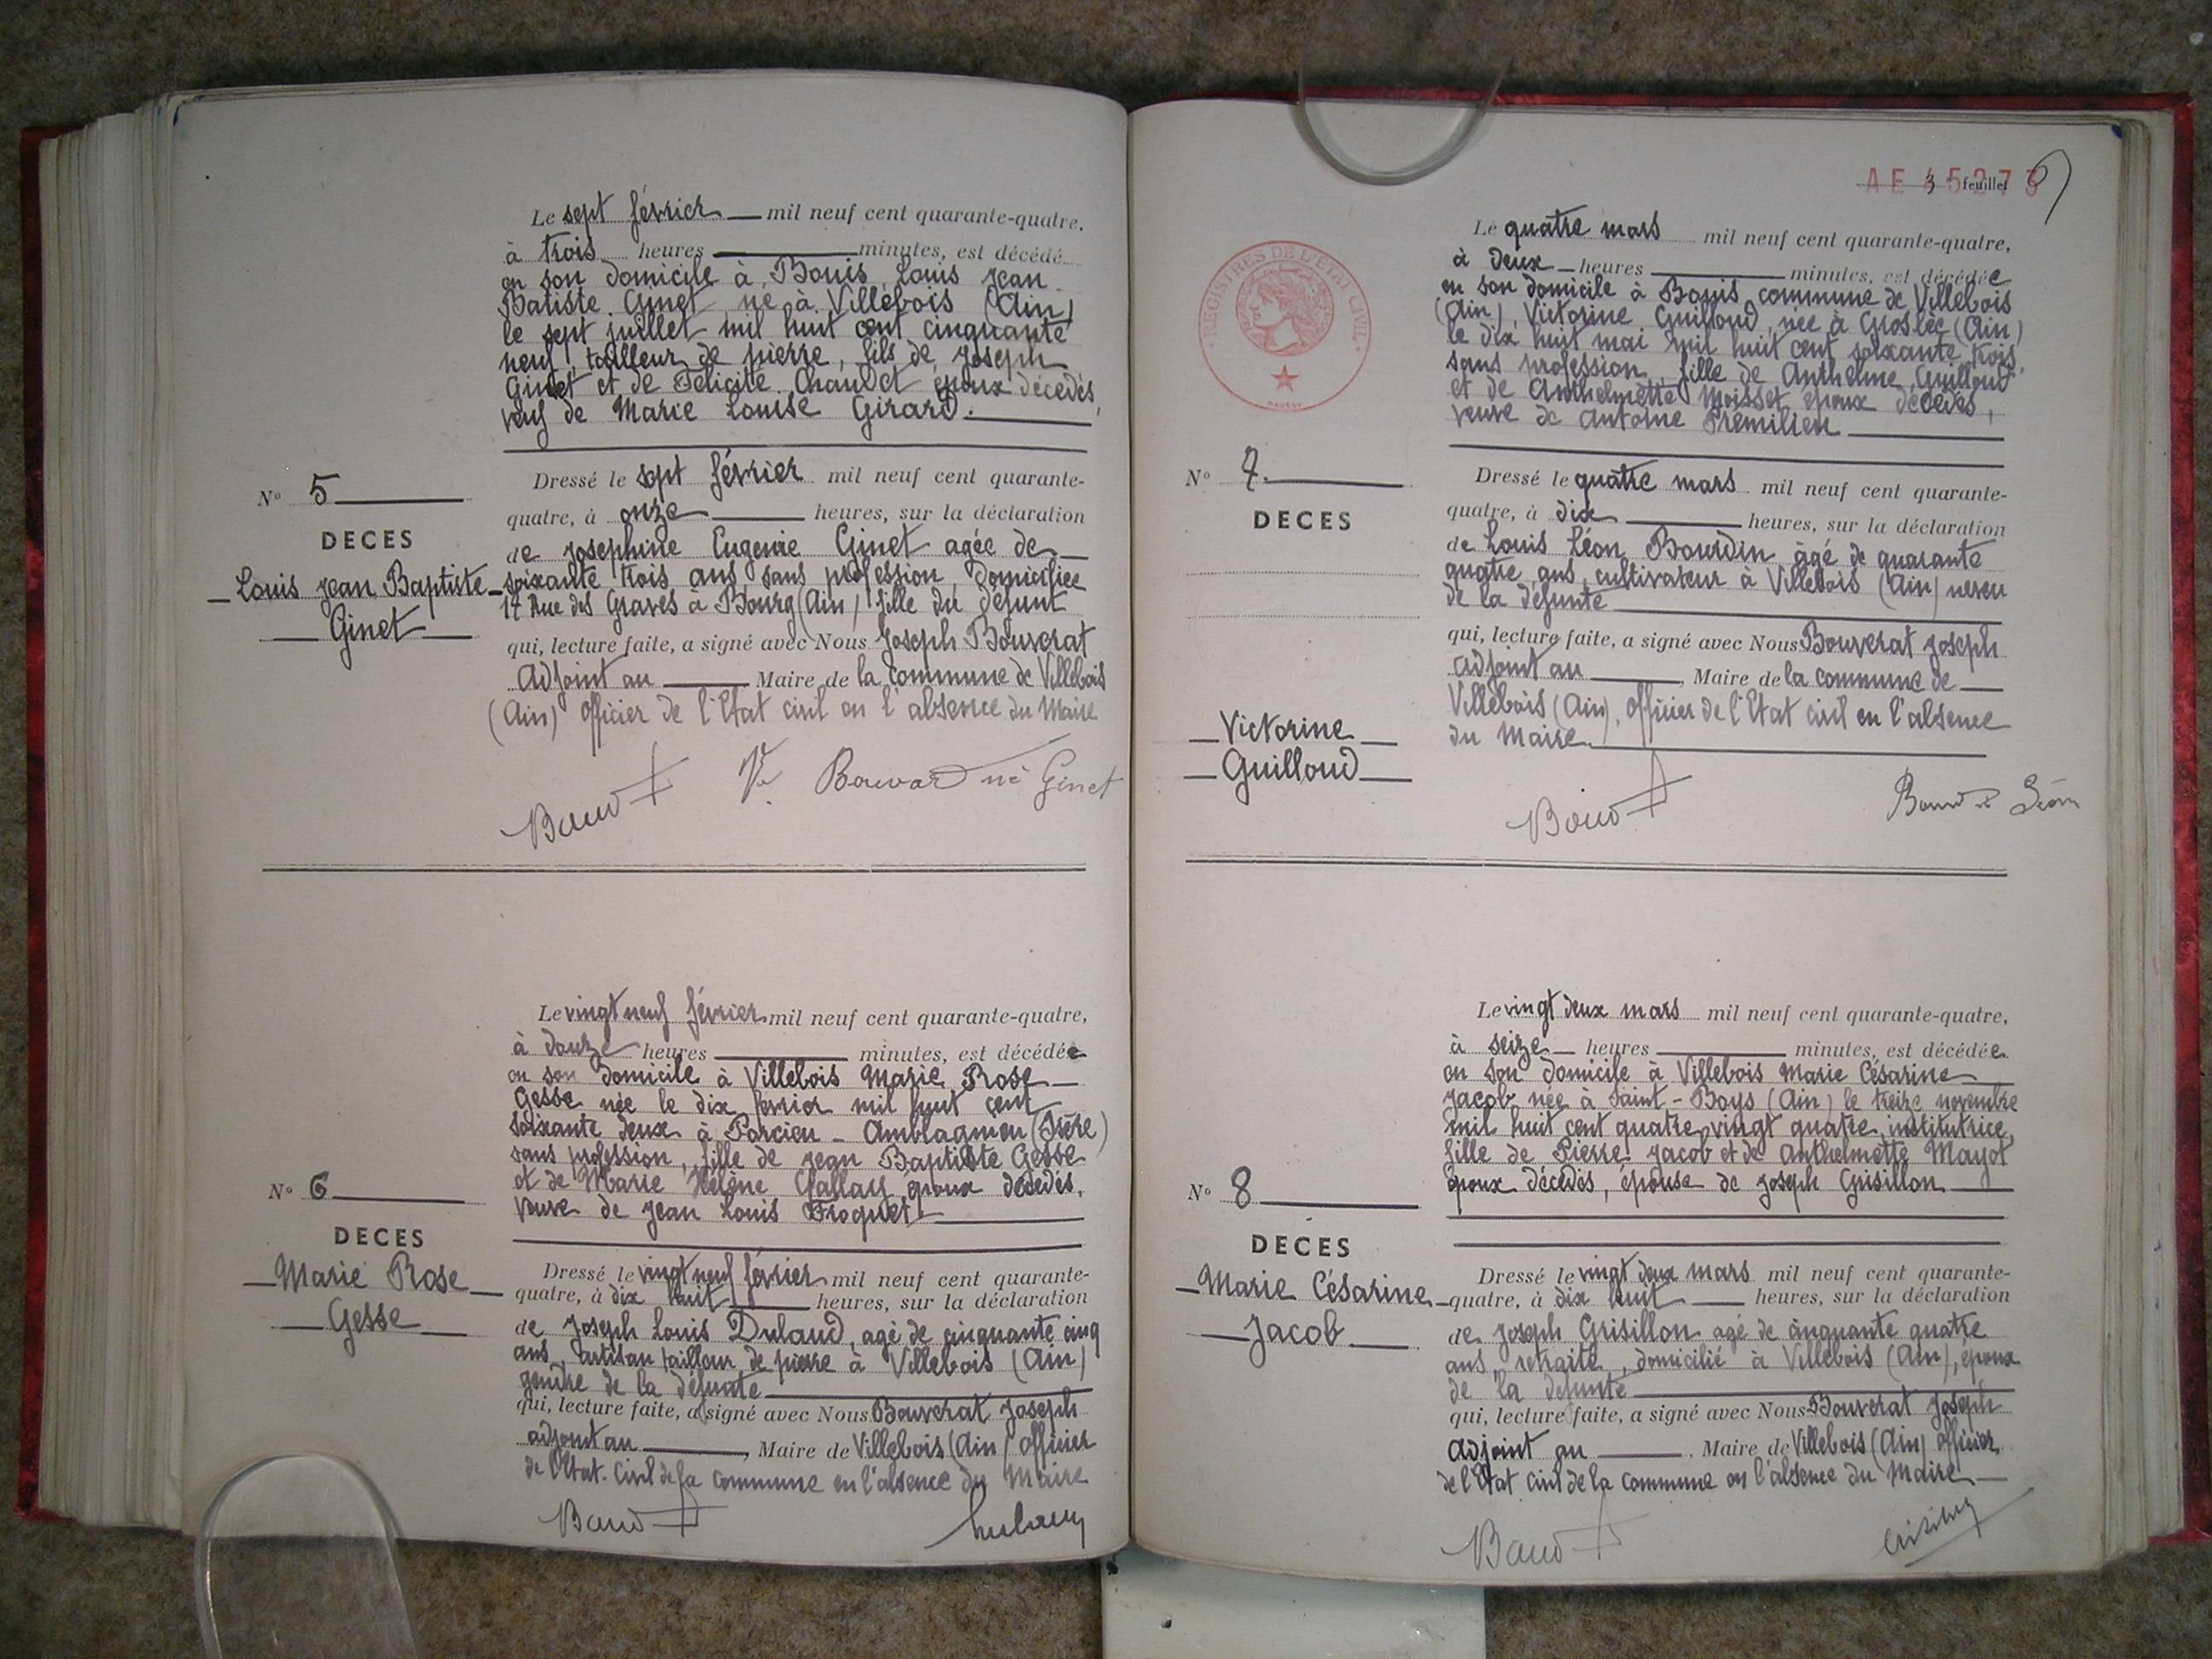 Le sept février mil neuf cent quarante-quatre,
à trois heures minutes, est décédé
en son domicile à Bouis, Louis Jean
Batiste Ginet né à Villebois (Ain)
le sept juillet mil huit cent cinquante
neuf, tailleur de pierre, fils de Joseph
Ginet et de Félicité Chaudet époux décédés,
veuf de Marie Louise Girard.
N° 5
DECES
Louis Jean Baptiste
Ginet
Dressé le sept février mil neuf cent quarante-
quatre, à onze heures, sur la déclaration
de Joséphine Eugenie Ginet agée de
soixante trois ans, sans profession, domiciliée
17 Rue des Graves à Bourg (Ain) fille du défunt
qui, lecture faite, a signé avec Nous Joseph Bouverat
Adjoint au Maire de la commune de Villebois
(Ain) officier de l'Etat civil en l'absence du Maire
Vve Bouvard né Ginet
Le vingt neuf février mil neuf cent quarante-quatre,
à douze heures minutes, est décédée
en son domicile à Villebois Marie Rose
Gesse née le dix février mil huit cent
soixante deux à Porcieu - Amblagnieu (Isère)
sans profession, fille de Jean Baptiste Gesse
et de Marie Hélène Gallay époux décédés,
veuve de Jean Louis Froquet
N° 6
DECES
Marie Rose
Gesse
Dressé le vingt neuf février mil neuf cent quarante-
quatre, à dix huit heures, sur la déclaration
de Joseph Louis Dulaud, agé de cinquante cinq
ans, artisan tailleur de pierre à Villebois (Ain)
gendre de la défunte
qui, lecture faite, a signé avec Nous Bouverat Joseph
adjoint au , Maire de Villebois (Ain) officier
de l'Etat-Civil de la commune en l'absence du Maire
AE 45273
3 feuillet
REGISTRES DE L'ÉTAT CIVIL
Le quatre mars mil neuf cent quarante-quatre,
à deux heures minutes, est décédée
en son domicile à Bouis commune de Villebois
(Ain), Victorine Guilloud, née à Groslée (Ain)
le dix huit mai mil huit cent soixante trois,
sans profession, fille de Anthelme Guilloud
et de Anthelmette Moisset époux décédés,
veuve de Antoine Premilieu
N° 7.
DECES
Victorine
Guilloud
Dressé le quatre mars mil neuf cent quarante-
quatre, à dix heures, sur la déclaration
de Louis Léon Bourdin âgé de quarante
quatre ans, cultivateur à Villebois (Ain) neveu
de la défunte
qui, lecture faite, a signé avec Nous Bouverat Joseph
adjoint au , Maire de la commune de
Villebois (Ain), officier de l'Etat civil en l'absence
du Maire.
Léon
Le vingt deux mars mil neuf cent quarante-quatre,
à seize heures minutes, est décédée
en son domicile à Villebois Marie Césarine
Jacob née à Saint-Boys (Ain) le treize novembre
mil huit cent quatre vingt quatre, institutrice,
fille de Pierre Jacob et de Anthelmette Mayot
époux décédés, épouse de Joseph Grisillon
N° 8
DECES
Marie Césarine
Jacob
Dressé le vingt deux mars mil neuf cent quarante-
quatre, à dix huit heures, sur la déclaration
de Joseph Grisillon agé de cinquante quatre
ans, retraité, domicilié à Villebois (Ain), époux
de la défunte
qui, lecture faite, a signé avec Nous Bouverat Joseph
Adjoint au . Maire de Villebois (Ain) officier
de l'Etat civil de la commune en l'absence du Maire